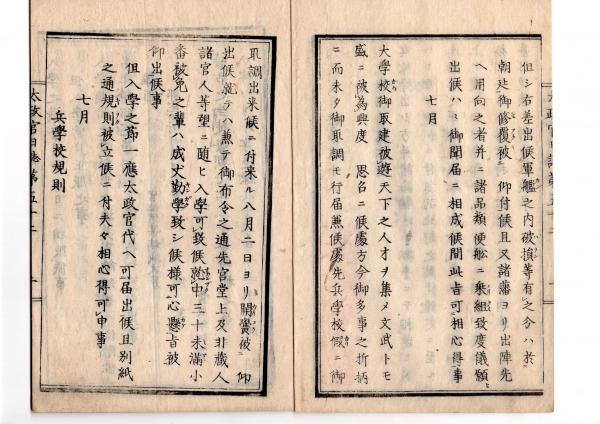 但シ右差出候軍艦之内破損等有之分ハ於
朝廷御修覆被 仰付候且又諸藩ヨリ出陣先
ヘ用向之者并ニ諸品類便船ニ乗組致度儀願
出候ハヽ御聞届ニ相成候間此旨可相心得事
七月
大學校御取建被遊天下之人才ヲ集メ文武トモ
盛ニ被為興度 思召ニ候處方今御多事之折柄
ニ而未タ御取調モ行届兼候處先兵學校假ニ御
取調出来候ニ付来ル八月二日ヨリ開黌被 仰
出候就テハ兼テ御布令之通先官堂上及非蔵人
諸官人等望ニ随ヒ入學可致候就中三十未滿小
番被免之輩ハ成丈勤學致シ候様可心懸旨被
仰出候事
但入學之節一應太政官代ヘ可届出候且別紙
之通規則被立候ニ付夫々相心得可申事
七月
兵學校規則
太政官日誌第五十二